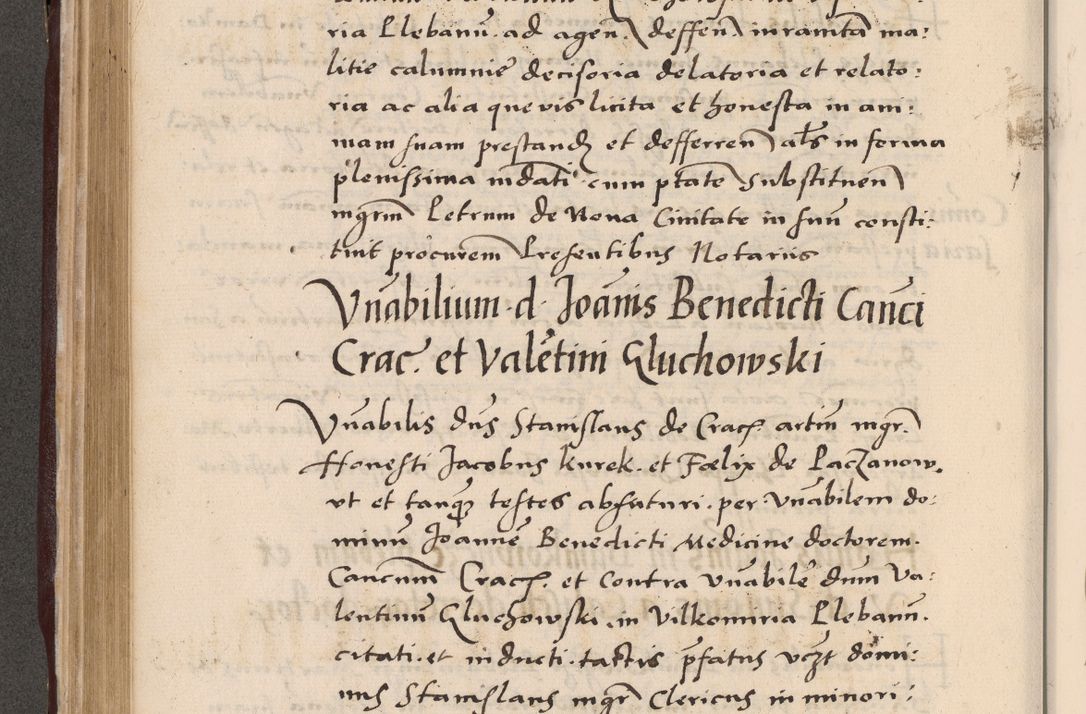 ria Plebanū. ad agen̄. deffen̄ iuramta ma:
litie calumnie decisoria delatoria et relato:
ria ac alia que vis licita et honesta in ani:
mam suam prestand et defferren̄ als in forma
plenissima mdati cum ptate substituen̄
mgrm Petrum de Nova Civitate in suū consti:
tuit procurem Presentibus Notariis
Vnabilium. d. Joānis Benedicti Canci
Crac. et Valētini Gluchowski
Vnabilis dns Stanislaus de Crac. artiū mgr.
Honesti Jacobus Kurek. et Fœlix de Paczanow.
vt et tanq testes absuturi. per Vnabilem do:
minū Joannē Benedicti Medicine doctorem.
Cancnum Crac. et Contra Vnabilē dnum Va:
lentinū Gluchowski. in Vilkomiria Plebanū.
citati. et inducti. tactis pfatus vczt domi:
nus Stanislaus mgr Clericus in minori: